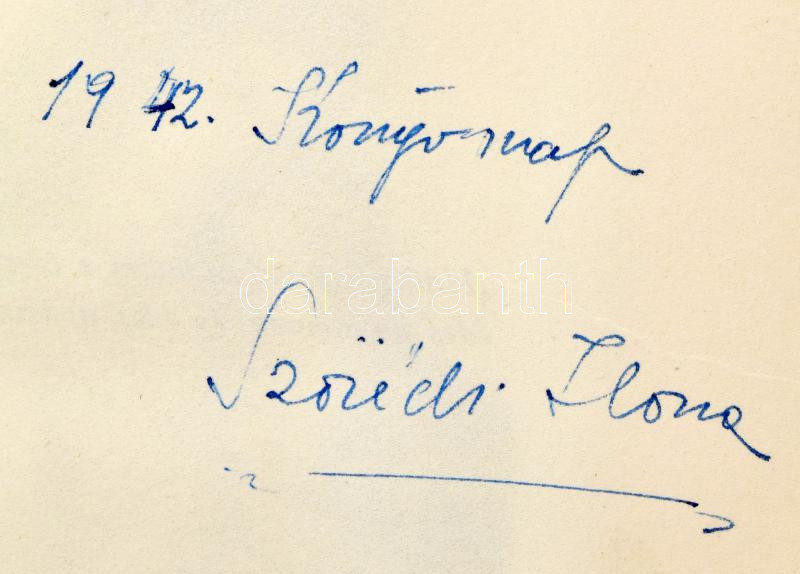 1942. Könyvnap
darabanth
Szöllédi Ilona